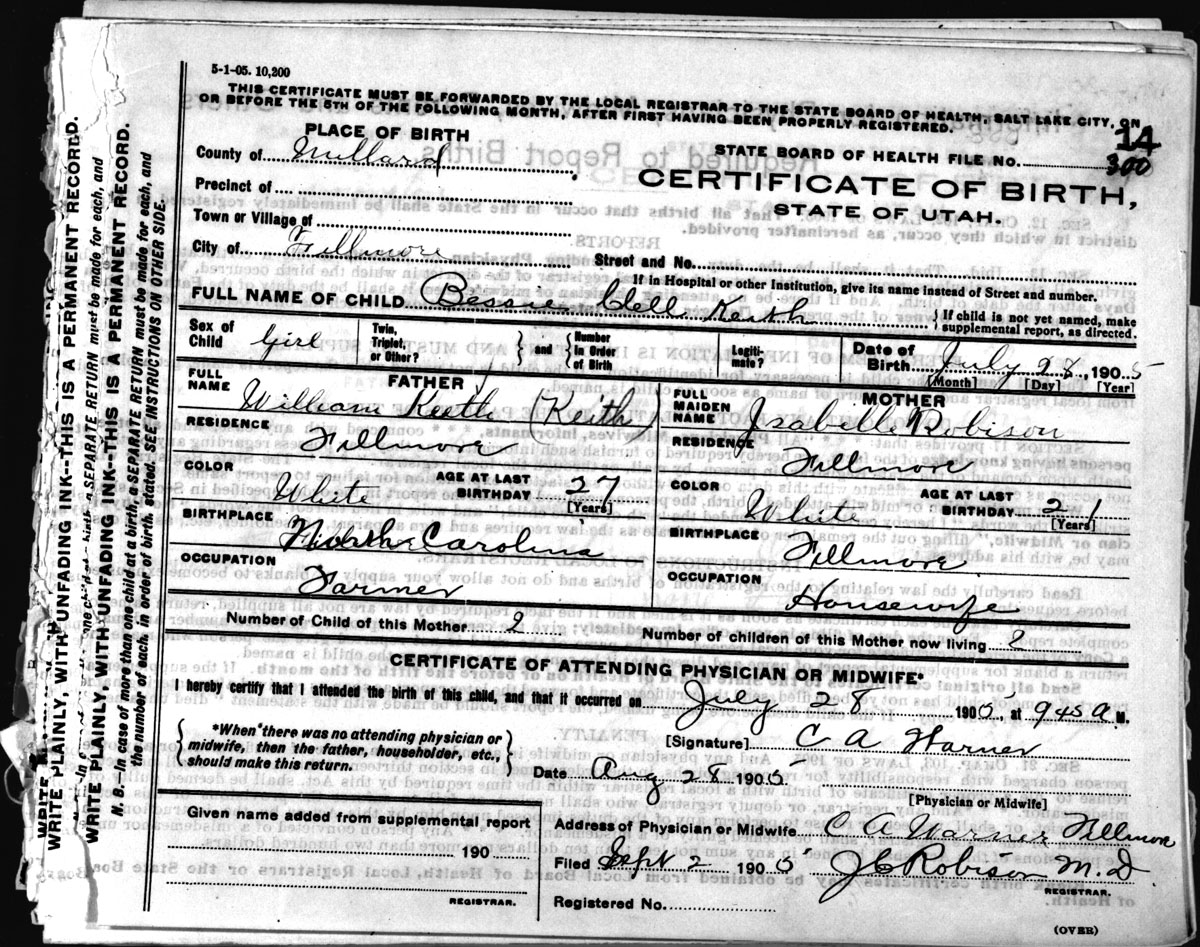 5-1-05. 10,200
THIS CERTIFICATE MUST BE FORWARDED BY THE LOCAL REGISTRAR TO THE STATE BOARD OF HEALTH, SALT LAKE CITY, ON
OR BEFORE THE 5TH OF THE FOLLOWING MONTH, AFTER FIRST HAVING BEEN PROPERLY REGISTERED.
14
PLACE OF BIRTH
STATE BOARD OF HEALTH FILE NO. 300
County of Millard
CERTIFICATE OF BIRTH,
Precinct of
STATE OF UTAH.
Town or Village of
City of Fillmore
Street and No.
If in Hospital or other Institution, give its name instead of Street and number.
FULL NAME OF CHILD Bessie Dell Keith
If child is not yet named, make
supplemental report, as directed.
Sex of Child Girl
Twin, Triplet, or Other?
and
Number In Order of Birth
Legiti-mate?
Date of Birth July 28, 1905
[Month] [Day] [Year]
FATHER
MOTHER
FULL NAME William Keeth (Keith)
FULL MAIDEN NAME Izabell Robison
RESIDENCE Fillmore
RESIDENCE Fillmore
COLOR White
AGE AT LAST BIRTHDAY 27
[Years]
COLOR White
AGE AT LAST BIRTHDAY 21
[Years]
BIRTHPLACE North Carolina
BIRTHPLACE Fillmore
OCCUPATION Farmer
OCCUPATION Housewife
Number of Child of this Mother 2
Number of children of this Mother now living 2
CERTIFICATE OF ATTENDING PHYSICIAN OR MIDWIFE*
I hereby certify that I attended the birth of this child, and that it occurred on July 28 1905, at 945 A. M.
*When there was no attending physician or
midwife, then the father, householder, etc.,
should make this return.
[Signature] C A Warner
Date Aug 28 1905
[Physician or Midwife]
Given name added from supplemental report
190
REGISTRAR.
Address of Physician or Midwife C A Warner Fillmore
Filed Sept 2 1905 J C Robison M.D.
REGISTRAR.
Registered No.
(OVER)
WRITE PLAINLY, WITH UNFADING INK--THIS IS A PERMANENT RECORD.
WRITE PLAINLY, WITH UNFADING INK--THIS IS A PERMANENT RECORD.
N. B.--In case of more than one child at a birth, a SEPARATE RETURN must be made for each, and
the number of each, in order of birth, stated. SEE INSTRUCTIONS ON OTHER SIDE.